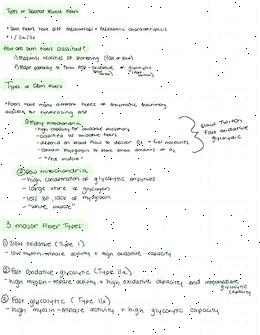 Types of Skeletal Muscle Fibers
• Skm fibers have diff mechanical + metabolic characteristics
• I / IIa / IIx
How are skm fibers classified?
① Maximal velocities of shortening (fast or slow)
② Major pathway to form ATP - oxidative or glycolytic
Types of Skm Fibers
• Fibers have many different types of enzymatic machinery
available for synthesizing ATP
① Many mitochondria
- high capacity for oxidative
- classified as oxidative fibers
- depend on blood flow to deliver O₂ + fuel molecules
- contain myoglobin to store small amounts of O₂
- "red muscle"
Slow Twitch
Fast oxidative
glycolytic
② Low mitochondria
- high concentration of glycolytic enzymes
- large store of glycogen
- less BF, lack of myoglobin
- "white muscle"
3 major Fiber Types:
① Slow oxidative (Type I)
- low myosin-ATPase activity + high oxidative capacity
② Fast Oxidative-glycolytic (Type IIa)
- high myosin-ATPase activity + high oxidative capacity and intermediate
glycolytic
capacity
③ Fast glycolytic (Type IIx)
- high myosin-ATPase activity + high glycolytic capacity